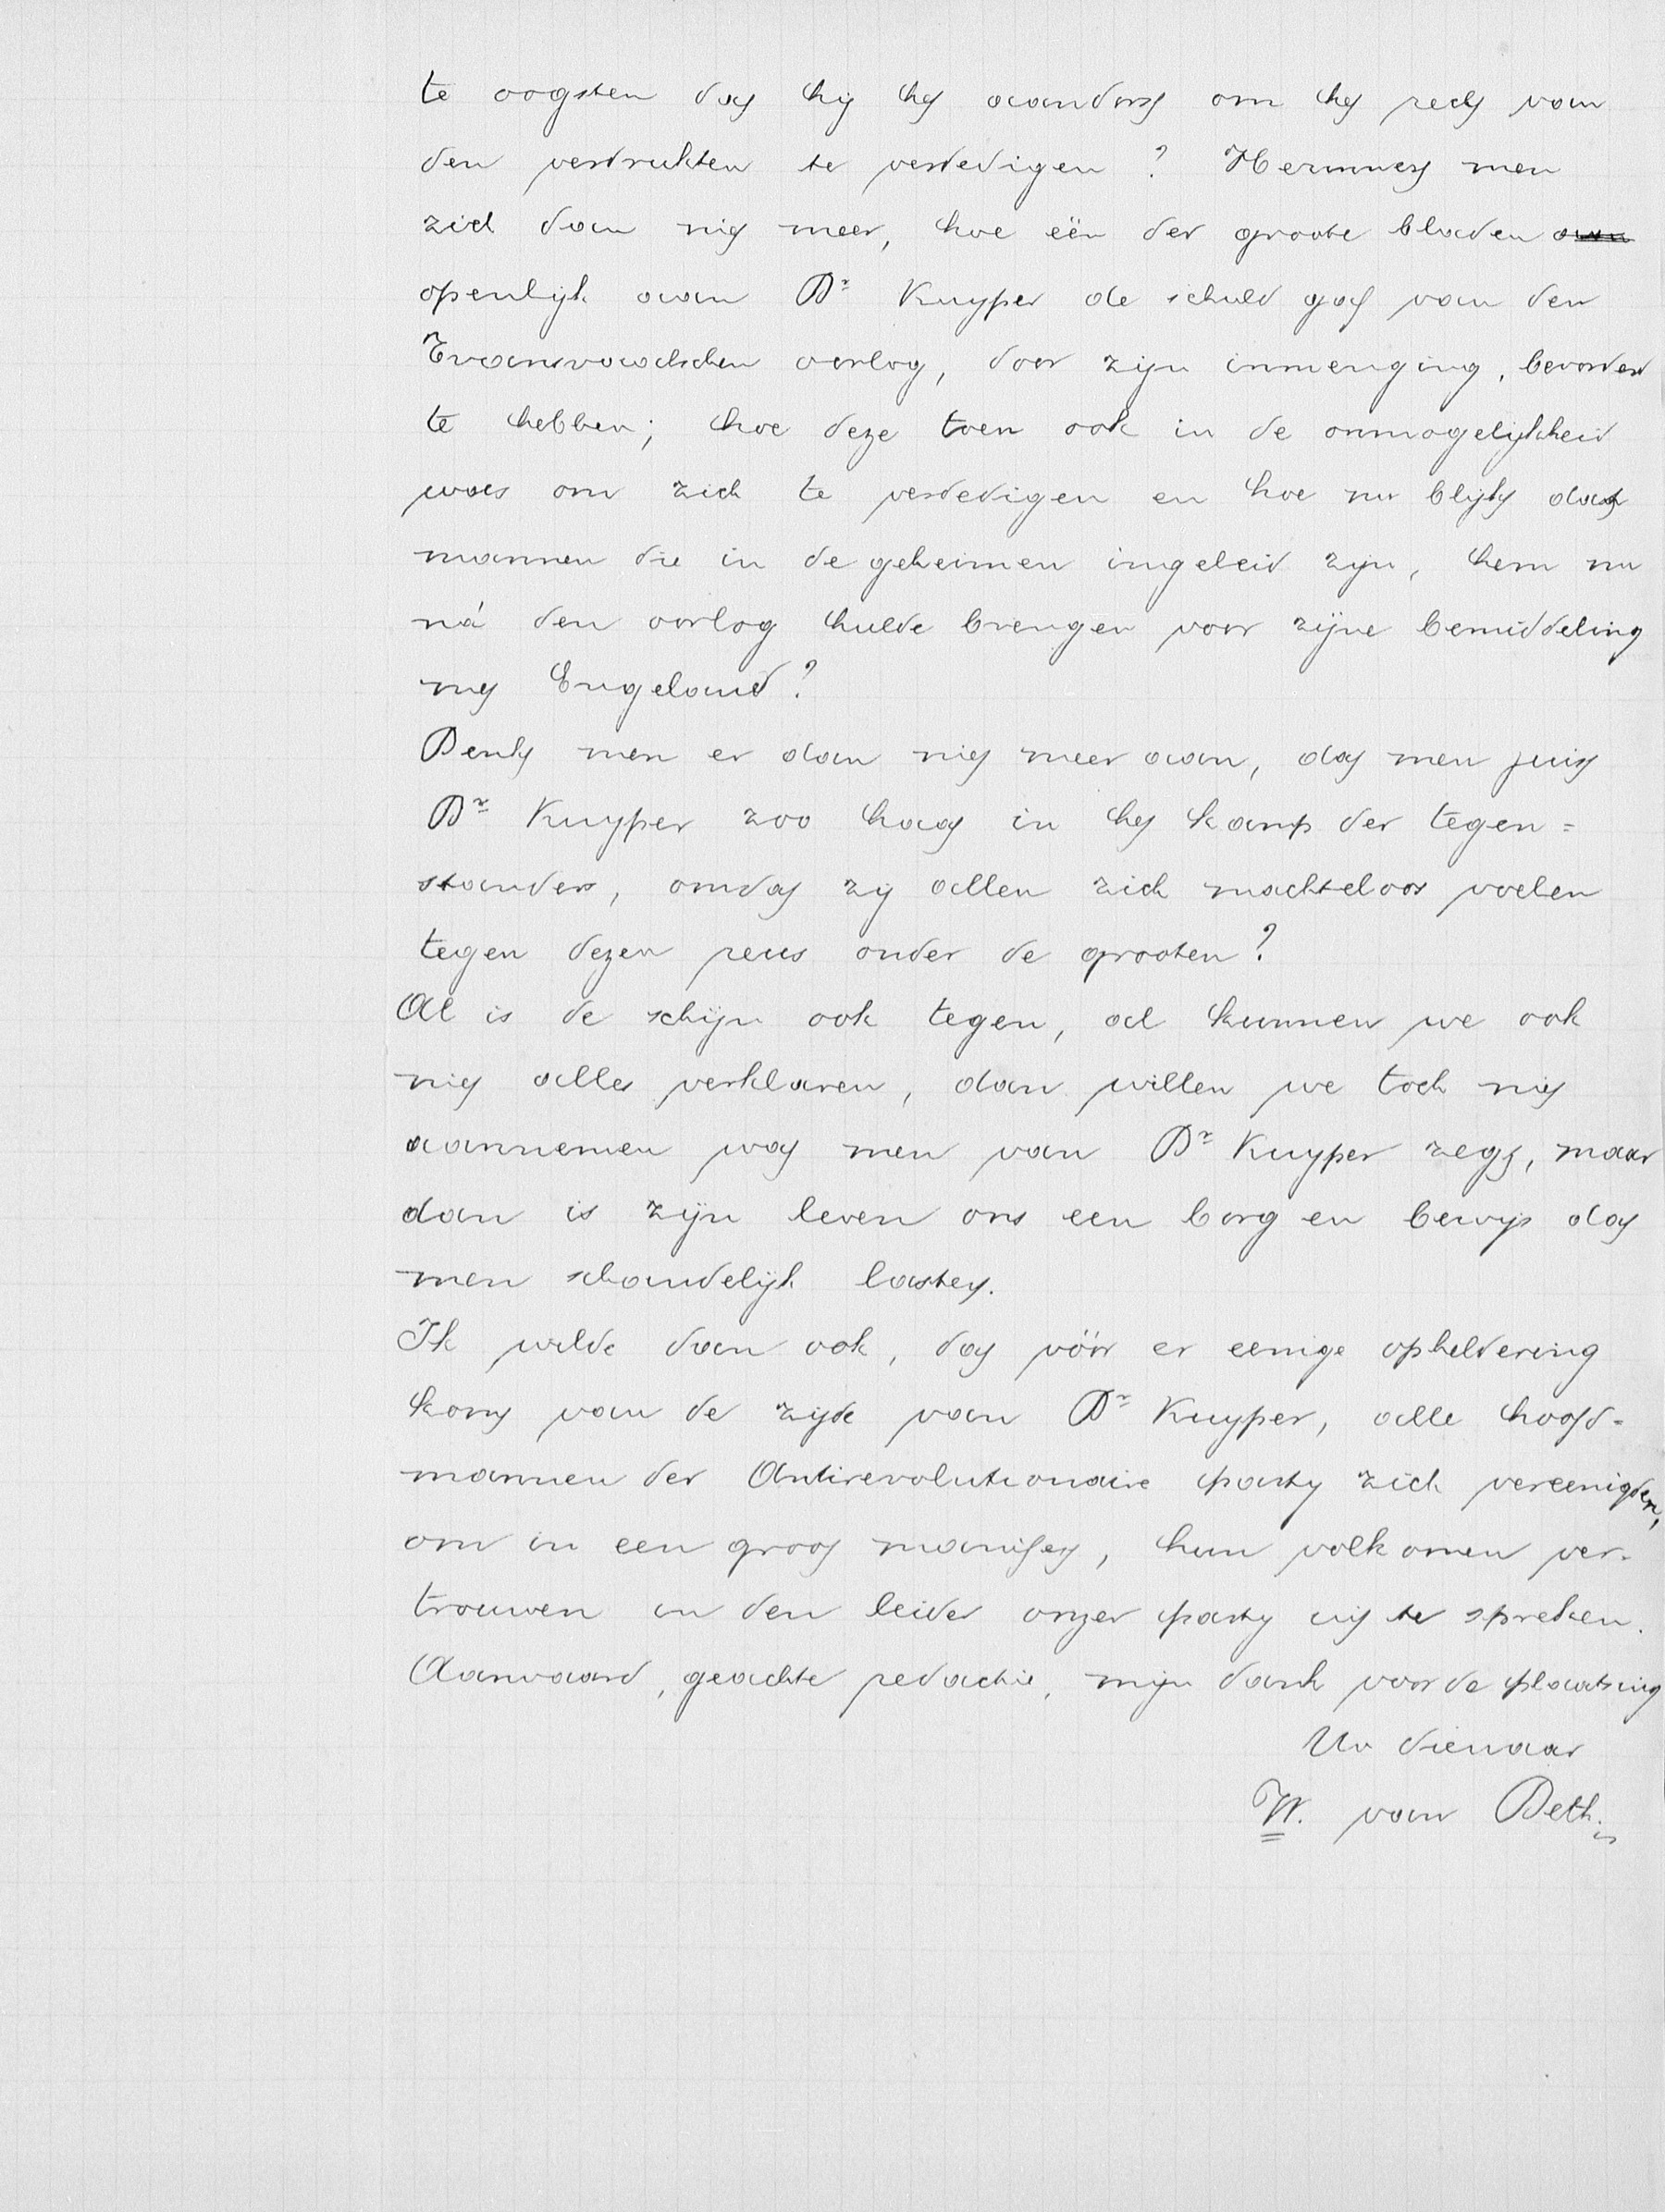 te oogsten dat hij het aandorst om het recht van
den verdrukten te verdedigen? Herinnert men
zich dan niet meer, hoe één der groote bladen
openlijk aan Dr Kuyper de schuld gaf van den
Transvaalschen oorlog, door zijn inmenging, bevorderd
te hebben; hoe deze toen ook in de onmogelijkheid
was om zich te verdedigen en hoe nu blijkt dat
mannen die in de geheimen ingeleid zijn, hem nu
ná den oorlog hulde brengen voor zijne bemiddeling
met Engeland?
Denkt men er dan niet meer aan, dat men juist
Dr Kuyper zoo haat in het kamp der tegen=
standers, omdat zij allen zich machteloos voelen
tegen dezen reus onder de grooten?
Al is de schijn ook tegen, al kunnen we ook
niet alles verklaren, dan willen we toch niet
aannemen wat men van Dr Kuyper zegt, maar
dan is zijn leven ons een borg en bewijs dat
men schandelijk lastert.
Ik wilde dan ook, dat vóór er eenige opheldering
komt van de zijde van Dr Kuyper, alle hoofd-
mannen der Antirevolutionaire party zich vereenigden,
om in een groot manifest, hun volkomen ver-
trouwen in den leider onzer party uit te spreken.
Aanvaard, geachte redactie, mijn dank voor de plaatsing
Uw dienaar
W. van Beth.